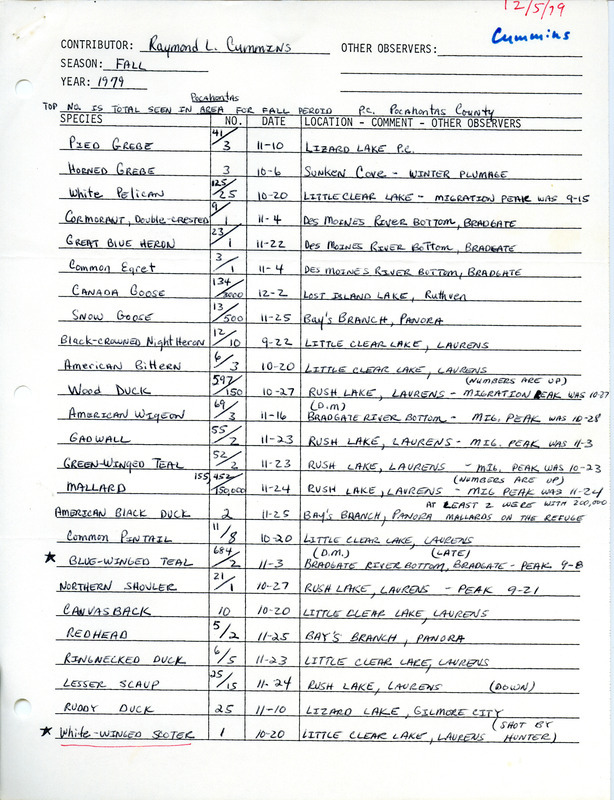 12/5/79
Cummins
CONTRIBUTOR: Raymond L. Cummins OTHER OBSERVERS:
SEASON: FALL
YEAR: 1979
TOP NO. IS TOTAL SEEN IN Pocahontas AREA FOR FALL PEROID P.C. Pocahontas County
SPECIES NO. DATE LOCATION - COMMENT - OTHER OBSERVERS
Pied Grebe 41/3 11-10 Lizard Lake P.C.
Horned Grebe 3 10-6 Sunken Cove - Winter Plumage
White Pelican 125/25 10-20 Little Clear Lake - Migration Peak was 9-15
Cormorant, Double-crested 9/1 11-4 Des Moines River Bottom, Bradgate
Great Blue Heron 23/1 11-22 Des Moines River Bottom, Bradgate
Common Egret 3/1 11-4 Des Moines River Bottom, Bradgate
Canada Goose 134/3000 12-2 Lost Island Lake, Ruthven
Snow Goose 13/500 11-25 Bay's Branch, Panora
Black-crowned Night Heron 12/10 9-22 Little Clear Lake, Laurens
American Bittern 6/3 10-20 Little Clear Lake, Laurens
(Numbers are up)
Wood Duck 597/150 10-27 Rush Lake, Laurens - Migration Peak was 10-27
(D.M)
American Wigeon 69/3 11-16 Bradgate River Bottom - Mig. Peak was 10-28
Gadwall 55/2 11-23 Rush Lake, Laurens - Mig. Peak was 11-3
Green-winged Teal 52/2 11-23 Rush Lake, Laurens - Mig. Peak was 10-23
(Numbers are up)
Mallard 155,452/150,000 11-24 Rush Lake, Laurens - Mig Peak was 11-24
At least 2 were with 200,000
American Black Duck 2 11-25 Bay's Branch, Panora Mallards on the refuge
Common Pintail 11/8 10-20 Little Clear Lake, Laurens
(D.M.) (Late)
★ Blue-winged Teal 684/2 11-3 Bradgate River Bottom, Bradgate - Peak 9-8
Northern Shovler 21/1 10-27 Rush Lake, Laurens - Peak 9-21
Canvasback 10 10-20 Little Clear Lake, Laurens
Redhead 5/2 11-25 Bay's Branch, Panora
Ringnecked Duck 6/5 11-23 Little Clear Lake, Laurens
Lesser Scaup 25/15 11-24 Rush Lake, Laurens (Down)
Ruddy Duck 25 11-10 Lizard Lake, Gilmore City
(Shot by
★ White-winged Scoter 1 10-20 Little Clear Lake, Laurens Hunter)